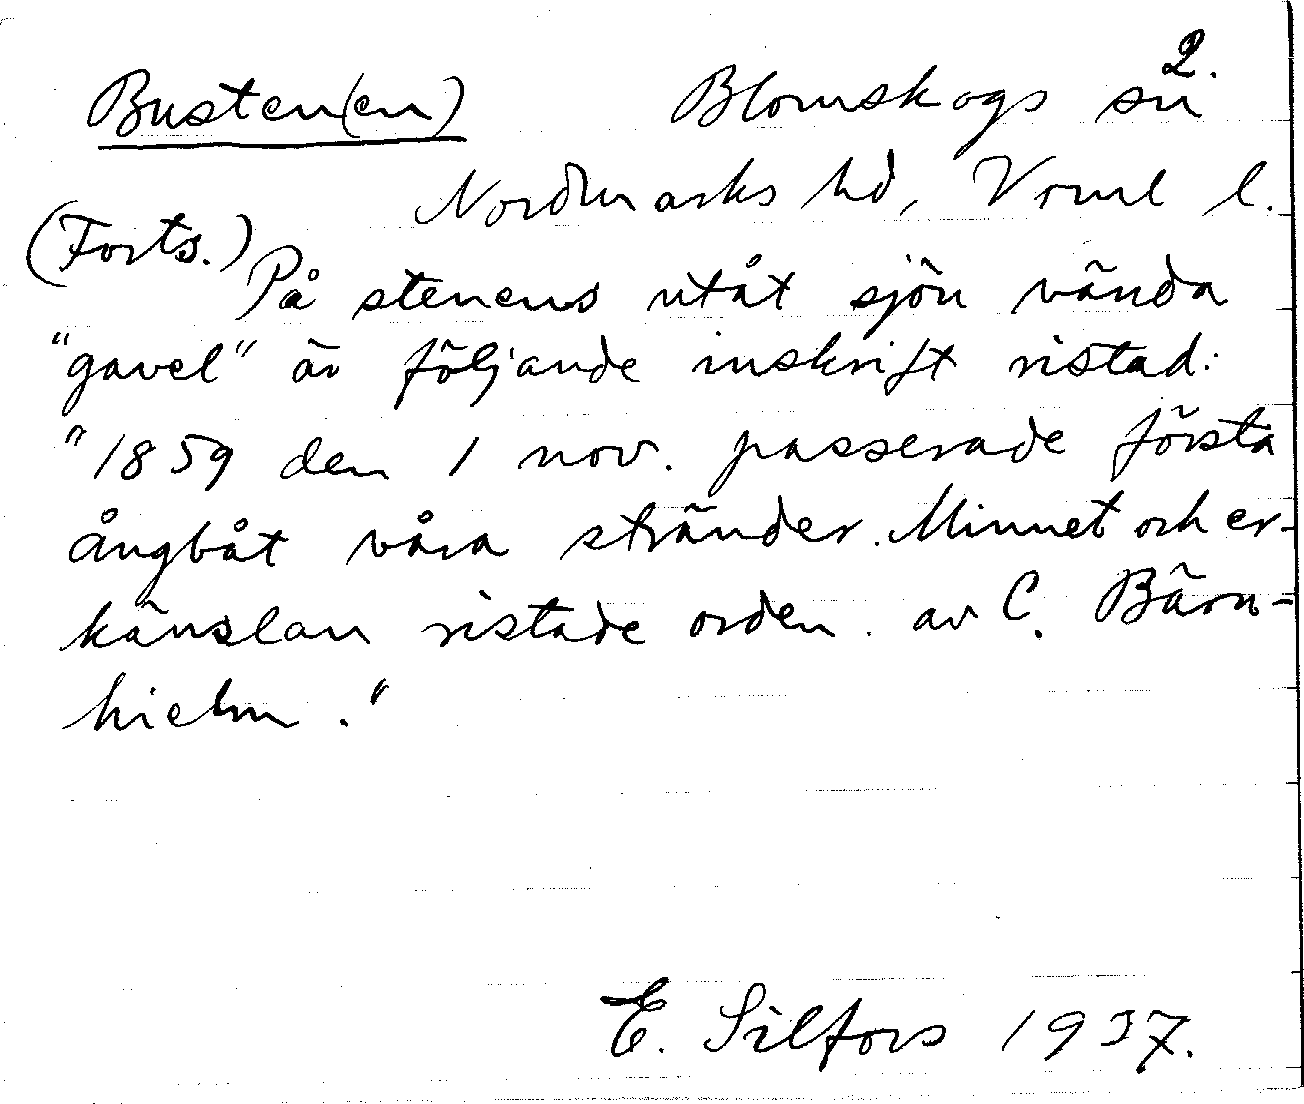 2.
Busten(en) Blomskogs sn
Nordmarks hd, Vrml l.
(Forts.)
På stenens utåt sjön vända
"gavel" är följande inskrift ristad:
"1859 den 1 nov. passerade första
ångbåt våra stränder. Minnet och er-
känslan ristade orden. av C. Bärn-
hielm."
E. Silfors 1937.